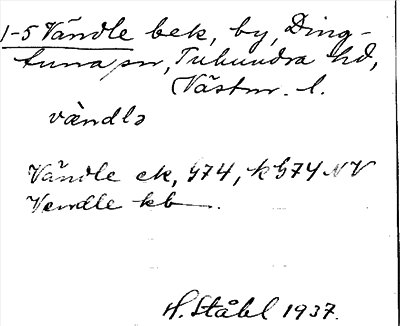 1-5 Vändle bek, by, Ding-
tuna sn, Tuhundra hd,
Västm. l.
vàndlə
Vändle ek, G74, k G74 NV
Vendle kb
H. Ståhl 1937.